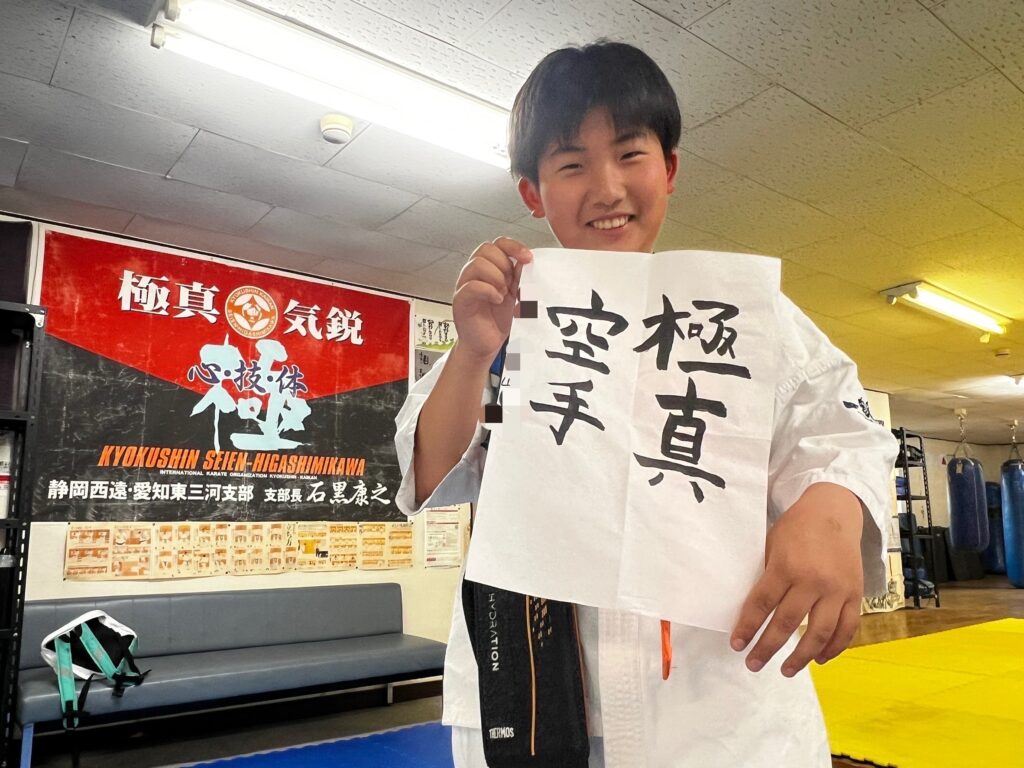 極真 気鋭
心・技・体
極
KYOKUSHIN SEIEN-HIGASHIMIKAWA
INTERNATIONAL KARATE ORGANIZATION KYOKUSHIN-KAIKAN
静岡西遠・愛知東三河支部 支部長 石黒康之
極真
空手
HYDRATION
THERMOS